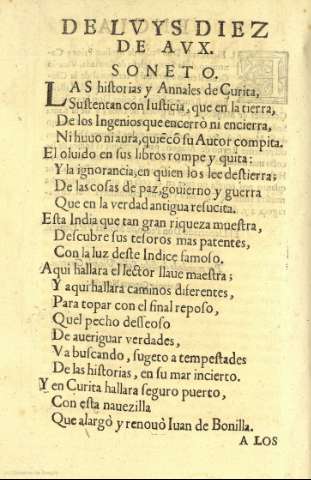 DE LVYS DIEZ
DE AVX.
SONETO.
LAS historias y Annales de Çurita,
Sustentan con Iusticia, que en la tierra,
De los Ingenios que encerrò ni encierra,
Ni huuo ni aura, quiẽcõ su Autor compita.
El oluido en sus libros rompe y quita:
Y la ignorancia, en quien los lee destierra;
De las cosas de paz, gouierno y guerra
Que en la verdad antigua resucita.
Esta India que tan gran riqueza muestra,
Descubre sus tesoros mas patentes,
Con la luz deste Indice famoso.
Aqui hallara el lector llaue maestra;
Y aqui hallara caminos diferentes,
Para topar con el final reposo,
Quel pecho desseoso
De aueriguar verdades,
Va buscando, sugeto a tempestades
De las historias, en su mar incierto.
Y en Çurita hallara seguro puerto,
Con esta nauezilla
Que alargò y renouò Iuan de Bonilla.
A LOS